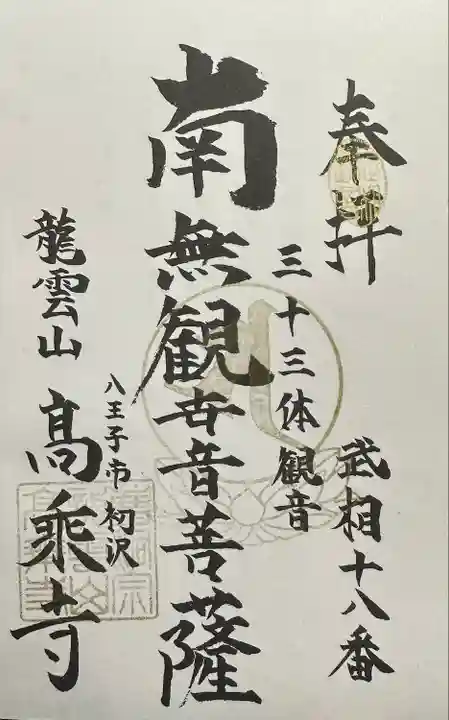 奉拝
武相十八番
三十三体観音
南無観世音菩薩
八王子市 初沢
龍雲山 高乗寺